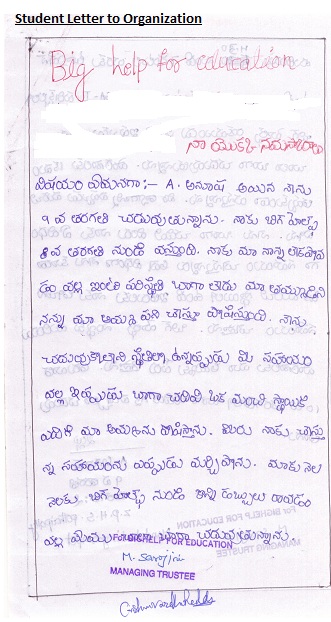 Student Letter to Organization
Big help for education
నా యొక్క నమస్కారాలు
విషయం ఏమనగా :- A. అనూష అయిన నేను
9 వ తరగతి చదువుతున్నాను. నాకు బిగ్ హెల్ప్
8 వ తరగతి నుండి వస్తుంది. నాకు మా నాన్న లేకపోవ
డం వల్ల ఇంటి పరిస్థితి బాగా లేదు మా అమ్మ
నన్ను మా అమ్మ పని చేస్తూ పోషిస్తుంది. నేను
చదువుకోలేని స్థితిలో ఉన్నప్పుడు మీ సహాయం
వల్ల ఇప్పుడు బాగా చదివి ఒక మంచి స్థాయికి
ఎదిగి మా అమ్మను పోషిస్తాను. మీరు నాకు చేస్తు
న్న సహాయంను ఎప్పుడు మర్చిపోను. మాకు నెల
నెలకు బిగ్ హెల్ప్ నుండి డబ్బులు రావడం
వల్ల మేము బాగా చదువుతున్నాను.
FOR BIGHELP FOR EDUCATION
M. Sarojini
MANAGING TRUSTEE